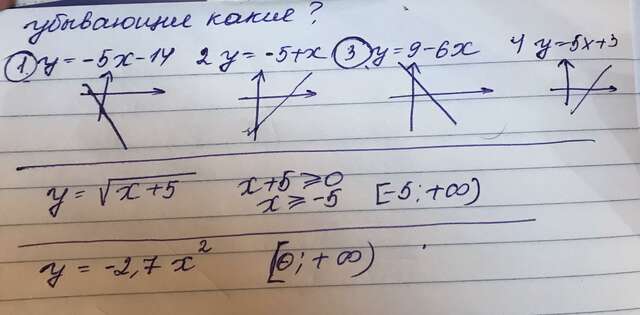 убывающие какие?
① y=-5x-14 2 y=-5+x ③ y=9-6x 4 y=5x+3
y=√x+5 x+5⩾0 [-5;+∞)
x⩾-5
y=-2,7x² [0;+∞)